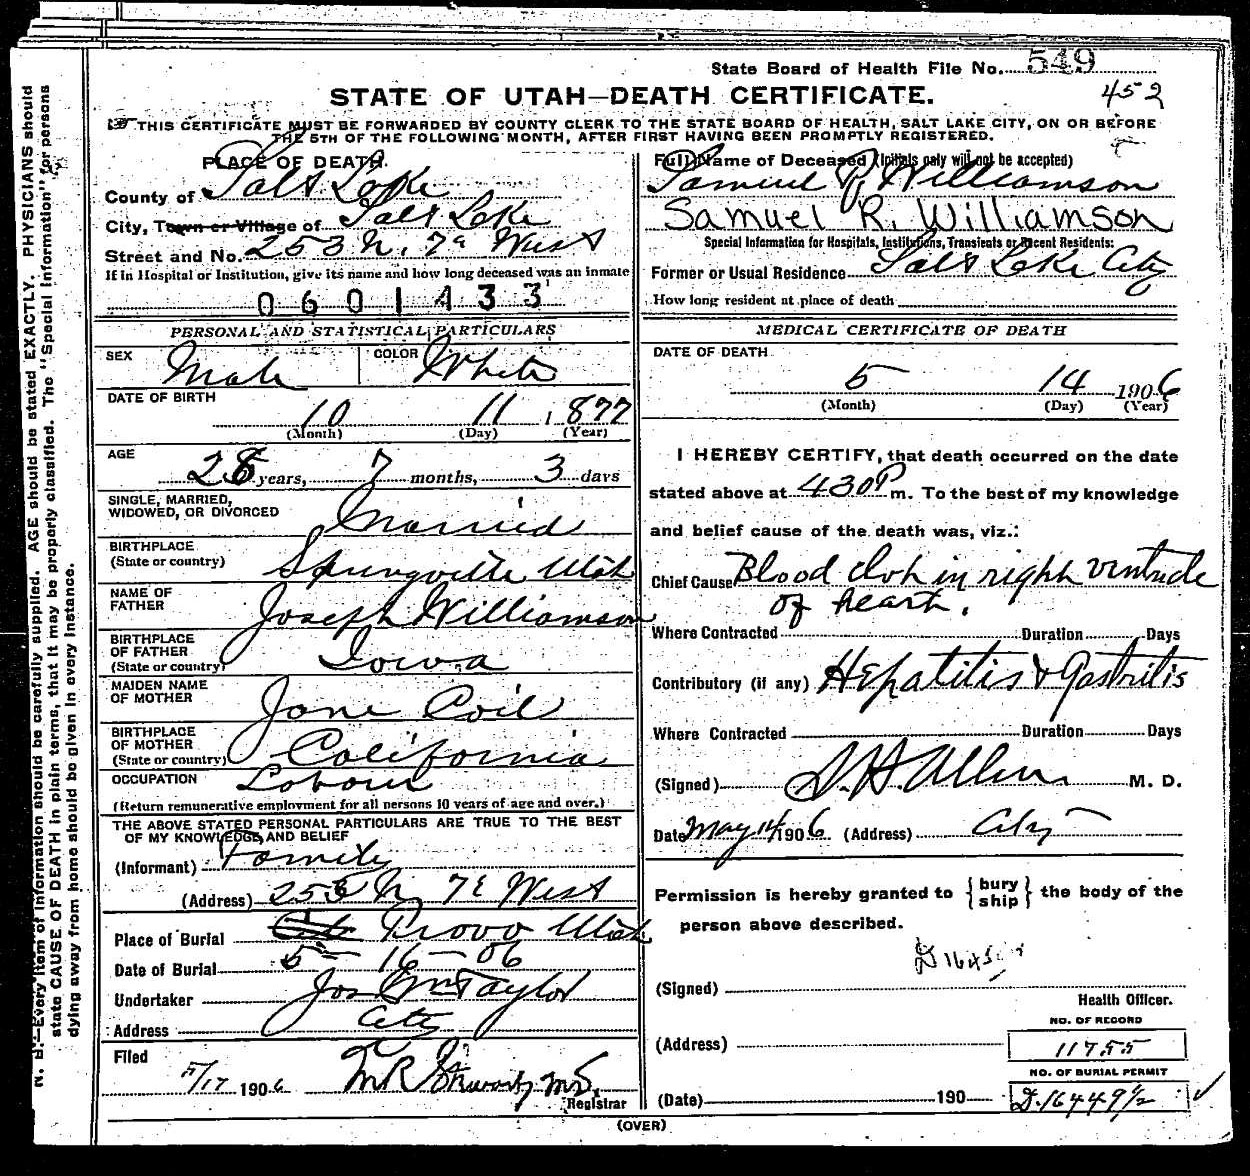 State Board of Health File No. 549
452
STATE OF UTAH—DEATH CERTIFICATE.
THIS CERTIFICATE MUST BE FORWARDED BY COUNTY CLERK TO THE STATE BOARD OF HEALTH, SALT LAKE CITY, ON OR BEFORE
THE 5TH OF THE FOLLOWING MONTH, AFTER FIRST HAVING BEEN PROMPTLY REGISTERED.
PLACE OF DEATH.
County of Salt Lake
City, Town or Village of Salt Lake
Street and No. 253 N. 7th West
If in Hospital or Institution, give its name and how long deceased was an inmate
0601433
PERSONAL AND STATISTICAL PARTICULARS
SEX Male COLOR White
DATE OF BIRTH
10 11 1877
(Month) (Day) (Year)
AGE
28 years, 7 months, 3 days
SINGLE, MARRIED,
WIDOWED, OR DIVORCED Married
BIRTHPLACE
(State or country) Springville Utah
NAME OF
FATHER Joseph Williamson
BIRTHPLACE
OF FATHER
(State or country) Iowa
MAIDEN NAME
OF MOTHER Jane Coil
BIRTHPLACE
OF MOTHER
(State or country) California
OCCUPATION Laborer
(Return remunerative employment for all persons 10 years of age and over.)
THE ABOVE STATED PERSONAL PARTICULARS ARE TRUE TO THE BEST
OF MY KNOWLEDGE AND BELIEF
(Informant) Family
(Address) 253 N 7th West
Place of Burial City Provo Utah
Date of Burial 5 — 16 — 06
Undertaker Jos Wm Taylor
Address City
Filed
5/17 1906 Registrar
Full Name of Deceased (Initials only will not be accepted)
Samuel R Williamson
Samuel R. Williamson
Special Information for Hospitals, Institutions, Transients or Recent Residents:
Former or Usual Residence Salt Lake City
How long resident at place of death
MEDICAL CERTIFICATE OF DEATH
DATE OF DEATH
5 14 1906
(Month) (Day) (Year)
I HEREBY CERTIFY, that death occurred on the date
stated above at 430 P m. To the best of my knowledge
and belief cause of the death was, viz.:
Chief Cause Blood clot in right ventricle
of heart.
Where Contracted Duration Days
Contributory (if any) Hepatitis & Gastritis
Where Contracted Duration Days
(Signed) S. H. Allen M. D.
Date May 14 1906 (Address) City
Permission is hereby granted to {bury ship} the body of the
person above described.
(Signed)
Health Officer.
NO. OF RECORD
(Address) 11755
NO. OF BURIAL PERMIT
(Date) 190 D.16449 1/2
(OVER)
N. B.—Every item of information should be carefully supplied. AGE should be stated EXACTLY. PHYSICIANS should
state CAUSE OF DEATH in plain terms, that it may be properly classified. The "Special Information" for persons
dying away from home should be given in every instance.